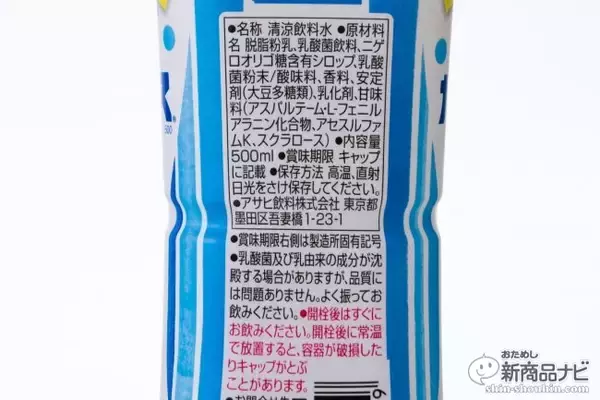 ●名称 清涼飲料水 ●原材料
名 脱脂粉乳、乳酸菌飲料、ニゲ
ロオリゴ糖含有シロップ、乳酸
菌粉末/酸味料、香料、安定
剤(大豆多糖類)、乳化剤、甘味
料(アスパルテーム・L-フェニル
アラニン化合物、アセスルファ
ムK、スクラロース) ●内容量
500ml ●賞味期限 キャップ
に記載 ●保存方法 高温、直射
日光をさけ保存してください。
●アサヒ飲料株式会社 東京都
墨田区吾妻橋1-23-1
●賞味期限右側は製造所固有記号
●乳酸菌及び乳由来の成分が沈
殿する場合がありますが、品質に
は問題ありません。よく振ってお
飲みください。●開栓後はすぐに
お飲みください。開栓後に常温
で放置すると、容器が破損した
りキャップがとぶ
ことがあります。
500
おためし
新商品ナビ
shin-shouhin.com